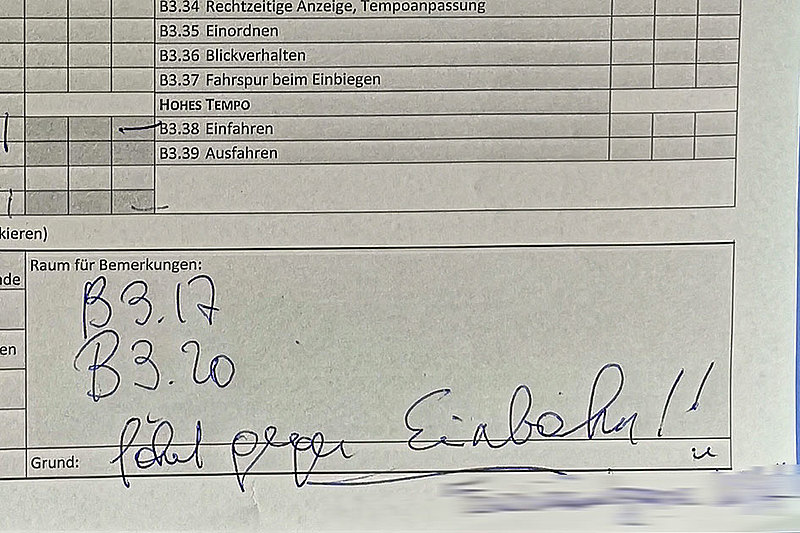 B3.34 Rechtzeitige Anzeige, Tempoanpassung
B3.35 Einordnen
B3.36 Blickverhalten
B3.37 Fahrspur beim Einbiegen
HOHES TEMPO
B3.38 Einfahren
B3.39 Ausfahren
kieren)
nde
en
Raum für Bemerkungen:
B3.17
B3.20
fährt gegen Einbahn!!
Grund: